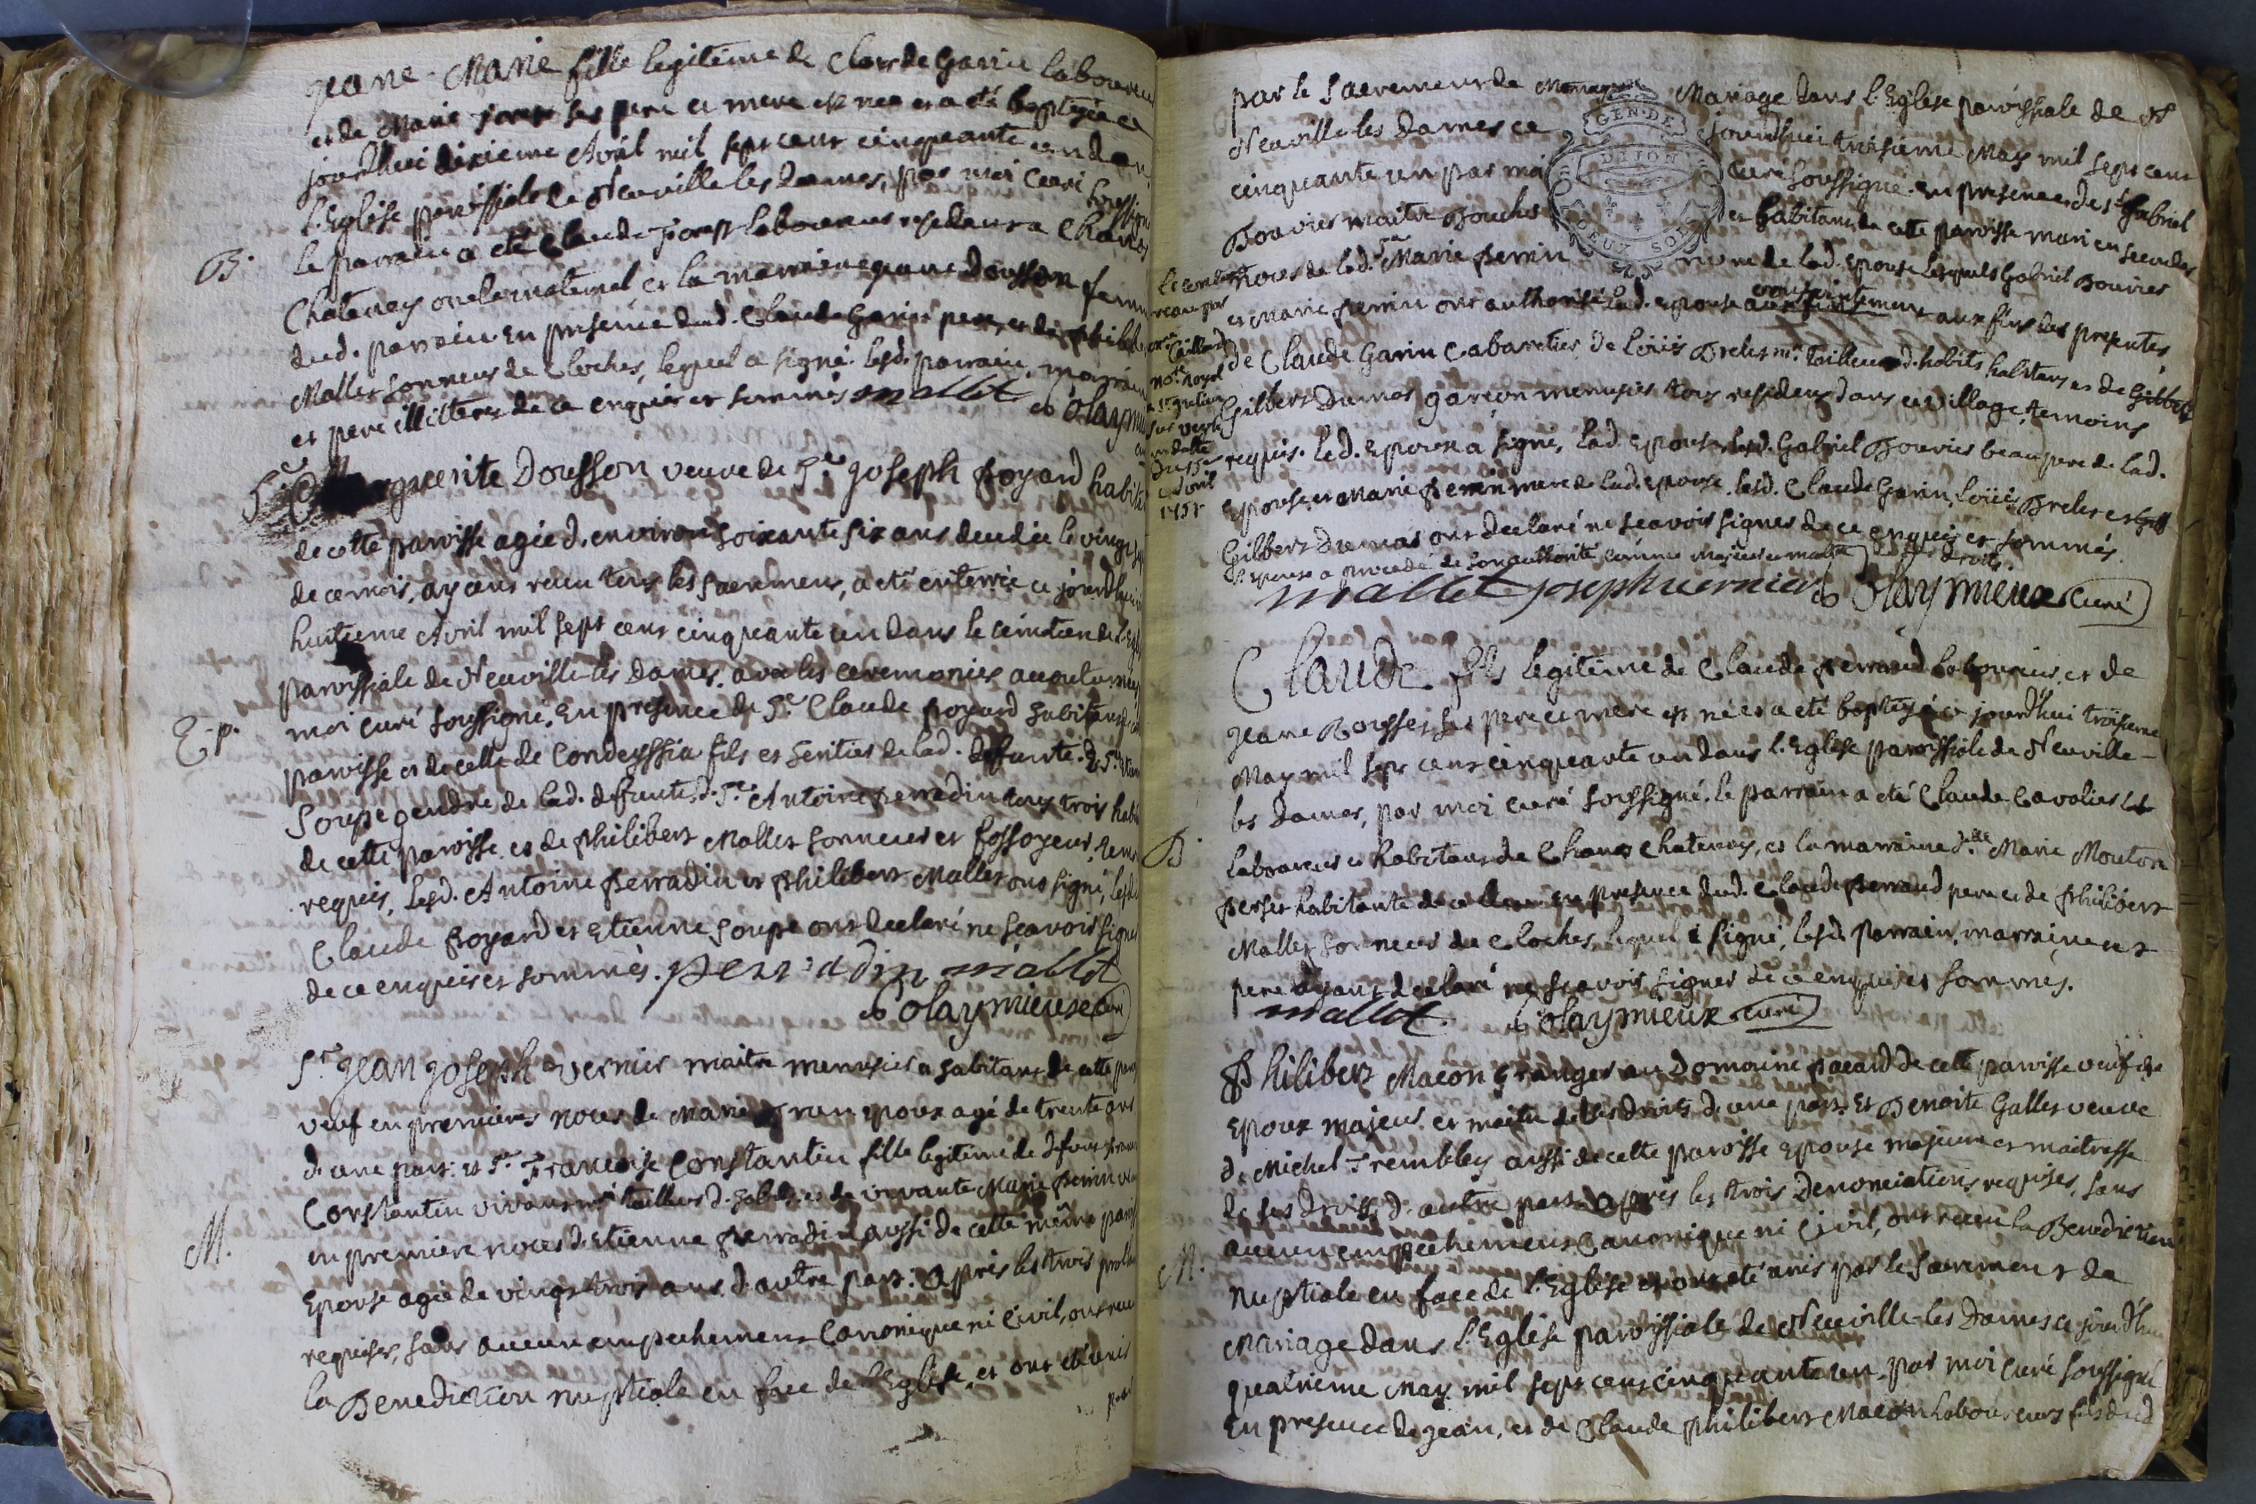 Jeane-Marie fille legitime de Claude Garin laboureur
et de Marie forest ses pere et mere est née et a été baptizée ce
jourdhui dixieme Avril mil sept cent cinquante un dans
l'Eglise paroissiale de Neuville les Dames, par moi curé soussigné
le parrain a été Claude forest laboureur residant a Chanoz
B.
Chatenay oncle maternel et la marraine jeane Dousson femme
dud. parrain. En presence dud. Claude Garin pere, et de philibert
Mallet sonneur de Cloches, lequel a signé. lesd. parrain, marraine
et pere illitteres de ce enquis et sommés mallet Colaymieux
Sre Marguerite Dousson veuve de Sr Joseph Poyard habitante
de cette paroisse agée d'environ soixante six ans decedée le vingt sept
de ce mois, ayant receu tous les sacremens, a été enterrée ce jourdhui
huitieme Avril mil sept cent cinquante un dans le cimetiere de l'Eglise
paroissiale de Neuville-les Dames, avec les ceremonies accoutumées
moi curé soussigné. En presence de Sr Claude Poyard habitant
E.p.
paroisse et de celle de Condeyssia fils et heritier de lad. deffunte. de Sr Etienne
Soupe gendre de lad. deffunte, d. Sr Antoine perradin tous trois
de cette paroisse et de Philibert Mallet sonneur et fossoyeur,
requis, lesd. Antoine Perradin et Philibert Mallet ont signé,
Claude Poyard et Etienne Soupe ont declaré ne sçavoir signer
de ce enquis et sommés. perradin mallet
Colaymieux curé
Sr Jean Joseph Vernier maitre menusier habitant de cette
veuf en premieres noces de Marie epoux agé de trente ans
d'une part. et Sre Françoise Constantin fille legitime de defunt
Constantin vivant me tailleur d'habits, et de vivante Marie Perrin
M.
en premiere noces d'Etienne Perradin aussi de cette même
Epouse agée de vingt trois ans d'autre part. Après les trois
requises, sans aucun empechement Canonique ni Civil, ont receu
la Benediction nuptiale en face de l'Eglise, et ont été unis
par le
par le Sacrement de Mariage dans l'Eglise paroissiale de
Neuville-les Dames ce jourdhui troisieme May mil sept cent
cinquante un par moi curé soussigné. En presence de Sr Gabriel
Bouvier maitre Boucher et habitant de cette paroisse mari en secondes
noces de lad. Sre Marie Perrin mere de lad. Epouse lesquels Gabriel Bouvier
et Marie Perrin ont authorisé lad. epouse aux fins des presentes,
de Claude Garin Cabaretier de Loüis Brelet me Tailleur d'habits habitans et de Gilbert
Gilbert Dumas garçon menusier tous residens dans ce village, temoins
requis. led. Epoux a signé, lad. Epouse, led. Gabriel Bouvier beaupere de lad.
Epouse, et Marie Perrin mere de lad. epouse. lesd. Claude Garin, Loüis Brelet et
Gilbert Dumas ont declaré ne sçavoir signer de ce enquis et sommés.
l'Epouse a procedé de son authorité comme majeure et maitresse de ses droits.
mallet joseph vernier Colaymieux curé
Avril
1751
Claude fils legitime de Claude Perraud laboureur, et de
Jeane Rousset ses pere et mere est né et a été baptizé ce jourdhui troisieme
May mil sept cent cinquante un dans l'Eglise paroissiale de Neuville-
les Dames, par moi curé soussigné. le parrain a été Claude Cavalier
B
laboureur et habitant de Chanoz Chatenay, et la marraine delle Marie Mouton
habitante de ce lieu. En presence dud. Claude Perraud pere et de Philibert
Mallet sonneur de Cloches, lequel a signé, lesd. parrain, marraine et
pere ayant declaré ne sçavoir signer de ce enquis et sommés.
mallet. Colaymieux curé
Philibert Macon granger au Domaine Pacard de cette paroisse veuf
Epoux majeur et maitre de ses droits d'une part. Et Benoite Gallet veuve
de Michel Tremblay aussi de cette paroisse Epouse majeure et maitresse
de ses droits d'autre part. Après les trois denonciations requises, sans
aucun empechement Canonique ni Civil, ont receu la Benediction
M.
nuptiale en face de l'Eglise et ont été unis par le Sacrement de
Mariage dans l'Eglise paroissiale de Neuville-les Dames ce jourdhui
quatrieme May mil sept cent cinquante un, par moi curé soussigné
En presence de Jean, et de Claude Philibert Macon laboureurs fils dud
GEN. DE
DIJON
DEUX SOLS